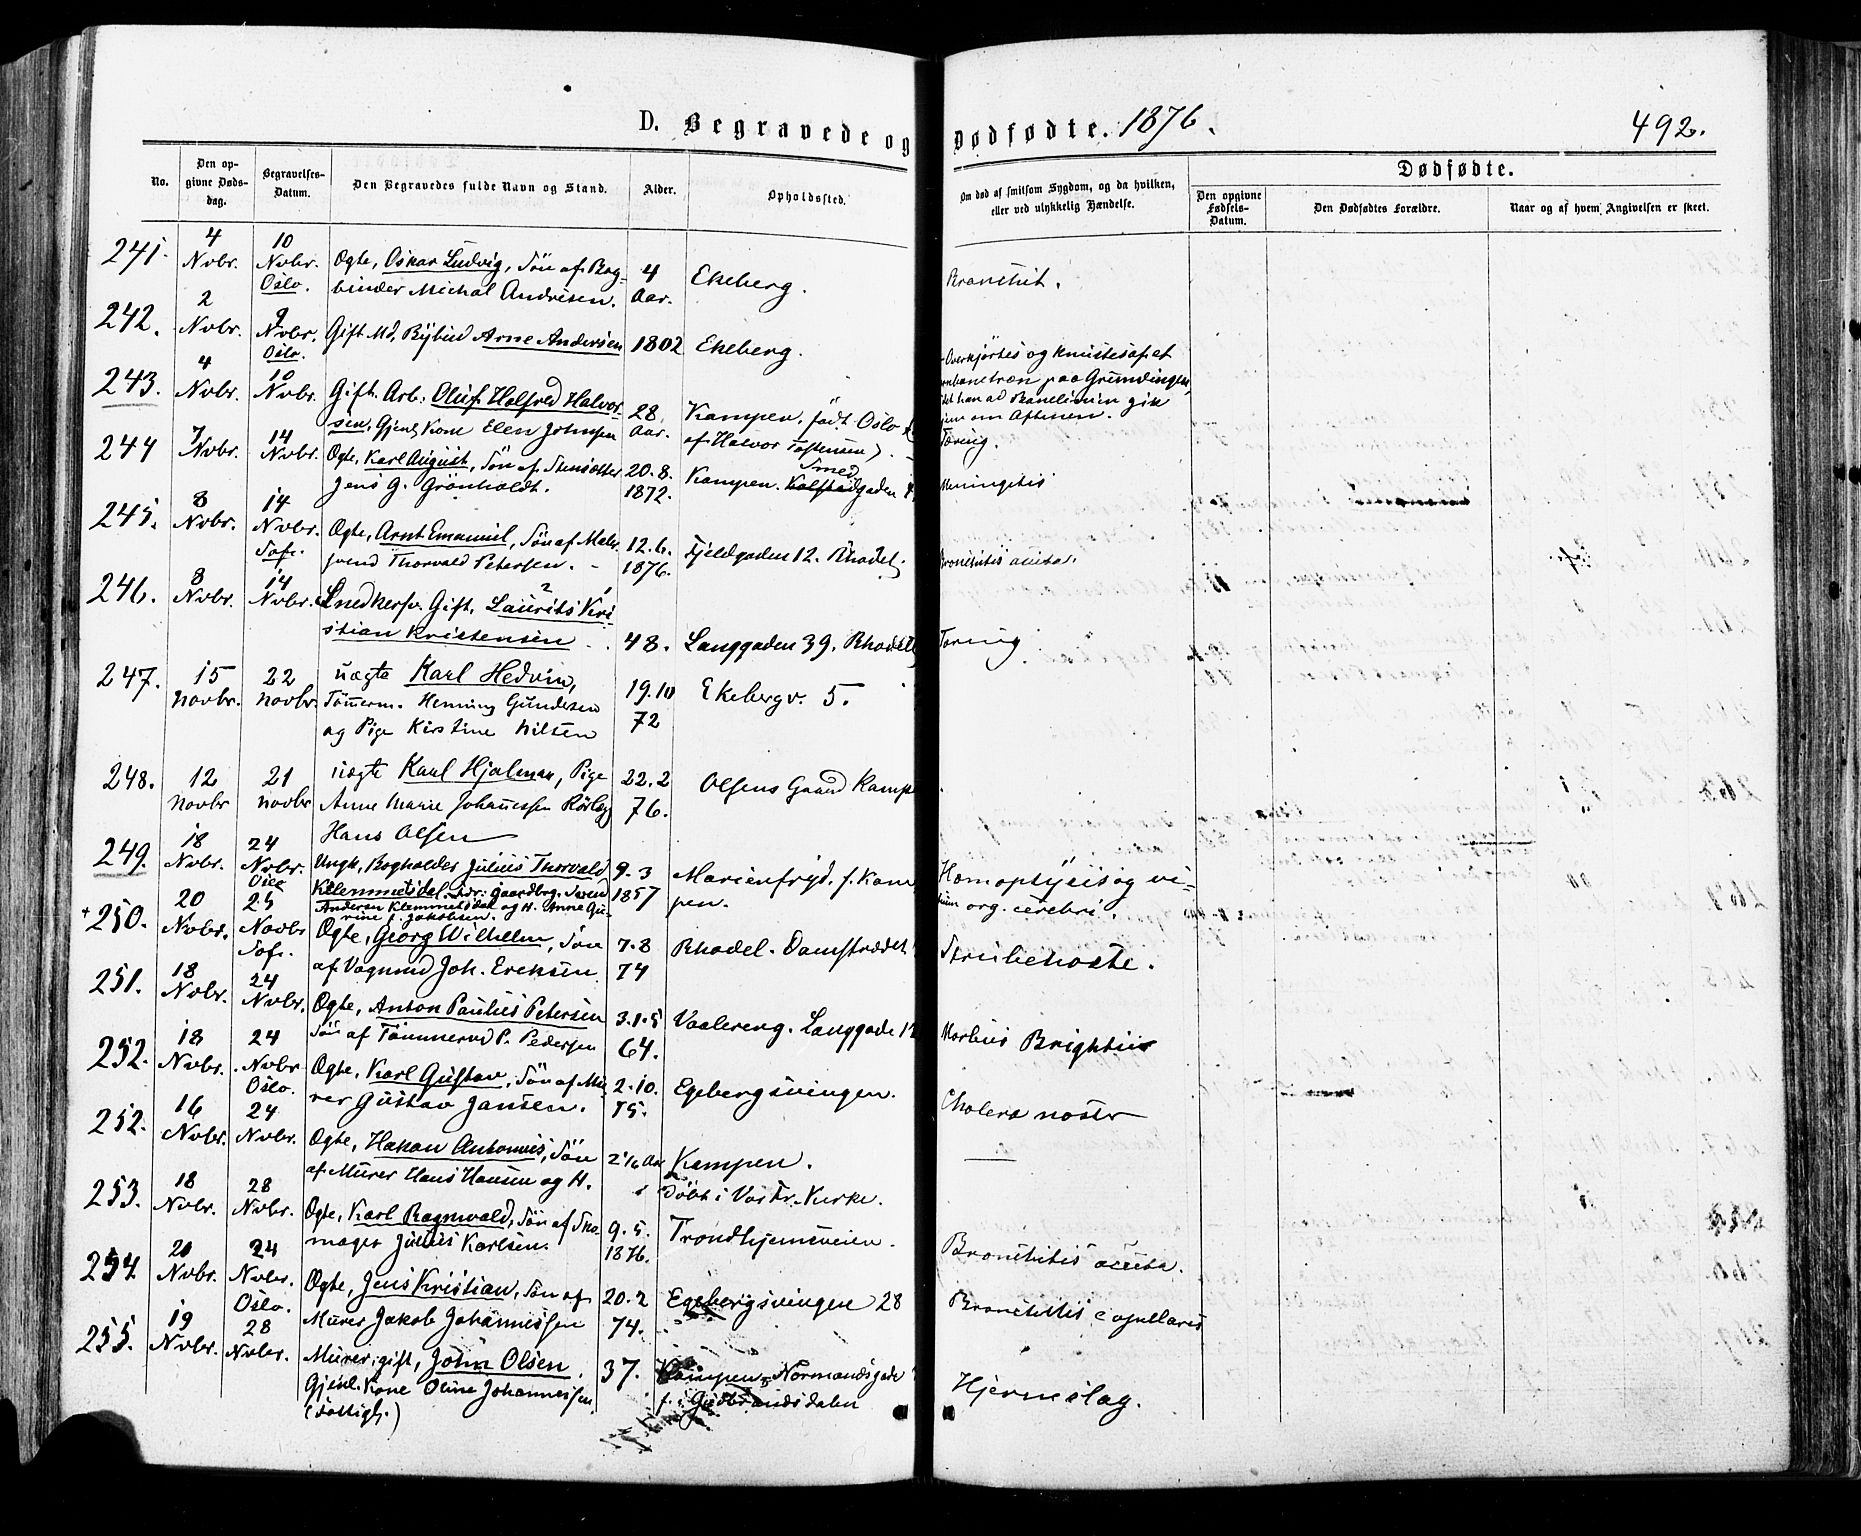 D. Begravede og Dødfødte. 1876.
492.
No.
Den opgivne Dødsdag.
Begravelses-Datum.
Den Begravedes fulde Navn og Stand.
Alder.
Opholdssted.
Om død af smitsom Sygdom, og da hvilken, eller ved ulykkelig Hændelse.
Dødfødte.
Den opgivne Fødsels-Datum.
Den Dødfødtes Forældre.
Naar og af hvem Angivelsen er skeet.
241. 4 Novbr. 10 Novbr. Oslo. Ægte, Oskar Ludvig, Søn af Bog-
binder Michal Andrésen. 4 Aar. Ekeberg. Bronchit.
242. 2 Novbr. 9 Novbr. Oslo. Gift Md, Arne Andersen 1802 Ekeberg.
Overkjørtes og knustes af et
paa Grændsingen
det han ad gik
hjem om Aftenen.
243. 4 Novbr. 10 Novbr. Gift Arb: Oluf Halfred Halvor-
sen, Gjenl. Kone Elen Johnsen 28 Aar. Kampen, født Oslo
af Halvor Tostensen). Tæring.
244 7 Novbr. 14 Novbr. Ægte, Karl August, Søn af
Jens G. Grönholdt. 20.8. 1872. Kampen. Smedgaden Meningitis
245. 8 Novbr. 14 Novbr. Sofi. Ægte, Arnt Emanuel, Søn af Maler
svend Thorvald Petersen. 12.6. 1876. Fjeldgaden 12. Rhodel. Bronchitis acuta.
246. 8 Novbr. 14 Novbr. Snedkersv. Gift, Laurits Kri-
stian Kristensen 48. Langgaden 39. Rhodel Tæring
247. 15 Novbr. 22 Novbr. uægte Karl Hedvin,
Tömerm. Henning Gundersen
og Pige Kirstine Nilsen 19.10 72 Ekebergv. 5.
248. 12 Novbr 21 Novbr uægte Karl Hjalmar, Pige
Anne Marie Johannessen
Hans Olsen 22.2 76. Olsens Gaard Kamp
249. 18 Novbr. 24 Novbr. Oslo Ungk. Bogholder Julius Thorvald
Klemmetsdal. For: Gaardbrg. Søren
Andersen Klemmetsdal og H. Anne Gu-
rine f. Jakobsen. 9.3 1857 Marienfryd. f. Kam
pen. Hæmoptysis og vi-
tium org. cerebri.
+250. 20 Novbr. 25 Novbr Sofi. Ægte, Georg Wilhelm, Søn
af Vognmd Joh. Ericksen 7.8 74 Rhodel. Damstrædet Strubehoste.
251. 18 Novbr. 24 Novbr. Ægte, Anton Paulus Petersen
Søn af Tömmermd P. Pedersen 3.1.5 64. Vaalereng. Langgade 12 Morbus Brightii
252. 18 Novbr. 24 Novbr Oslo. Ægte, Karl Gustav, Søn af Mu
rer Gustav Jansen. 2.10. 75. Egebergsvingen. Cholera nostr
252. 16 Novbr. 24 Novbr. Ægte, Hakon Antonius, Søn
af Murer Hans Hansen og H. 2 1/6 Aar Kampen.
Döbt i Vor Fr. Kirke.
253. 18 Novbr. 28 Novbr. Ægte, Karl Ragnvald, Søn af Sko
mager Julius Karlsen. 9.5. 1876. Trondhjemsveien. Bronchitis acuta.
254 20 Novbr. 24 Novbr. Oslo. Ægte, Jens Kristian, Søn af
Murer Jakob Johannessen 20.2 74. Egebergsvingen 28 Bronchitis capillaris
255. 19 Novbr. 28 Novbr. Murer, gift, John Olsen.
Gjenl. Kone Oline Johannessen
(Fattigk.) 37. Kampen, Normandsgade
f. i Gudbrandsdalen Hjerneslag.